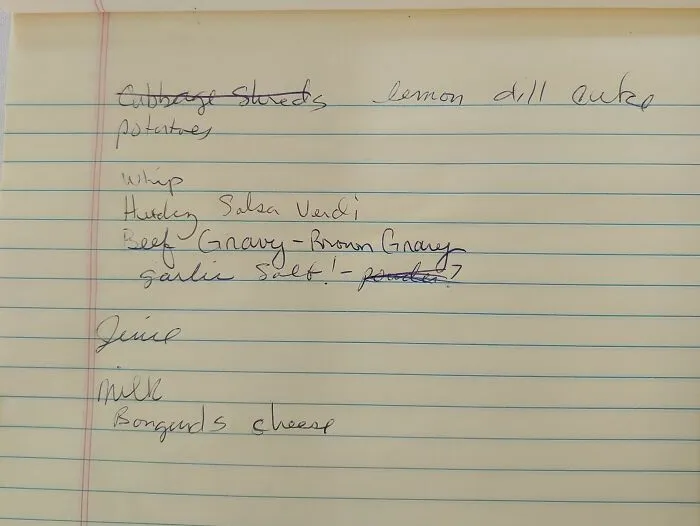 Cabbage Shreds lemon dill cuke
potatoes
whip
Salsa Verdi
Beef Gravy - Brown Gravy
garlic Salt! - powder?
Juice
Milk
Bongards cheese